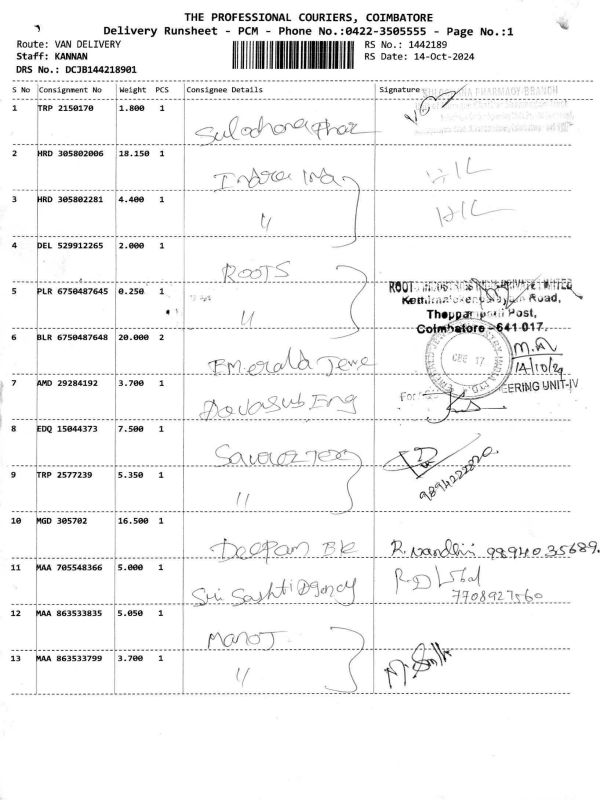 THE PROFESSIONAL COURIERS, COIMBATORE
Delivery Runsheet - PCM - Phone No.:0422-3505555 - Page No.:1
Route: VAN DELIVERY
RS No.: 1442189
Staff: KANNAN
RS Date: 14-Oct-2024
DRS No.: DCJB144218901
S No Consignment No Weight PCS Consignee Details Signature
1 TRP 2150170 1.800 1
Sulochana Phar
2 HRD 305802006 18.150 1
3 HRD 305802281 4.400 1
"
4 DEL 529912265 2.000 1
ROOTS
5 PLR 6750487645 0.250 1
"
Road,
Thoppampatti Post,
Coimbatore - 641 017.
6 BLR 6750487648 20.000 2
Emerald Jewe
14/10/24
7 AMD 29284192 3.700 1
EERING UNIT-IV
For
8 EDQ 15044373 7.500 1
9 TRP 2577239 5.350 1
"
10 MGD 305702 16.500 1
Deepam
R. Nandhini 98940 35689.
11 MAA 705548366 5.000 1
Sri Sashti Agency
7708927560
12 MAA 863533835 5.050 1
Manoj
13 MAA 863533799 3.700 1
"